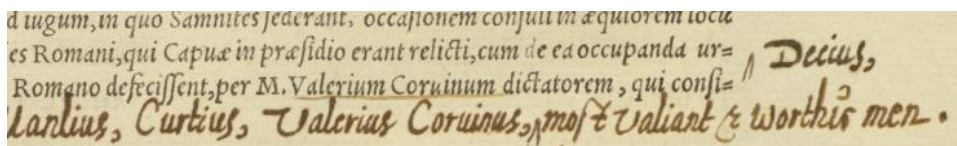 d iugum, in quo Samnites ſederant, occaſionem conſuli in æquiorem locũ
es Romani, qui Capuæ in præſidio erant relicti, cum de ea occupanda ur=
Romano defeciſſent, per M. Valerium Coruinum dictatorem, qui conſi=
Decius,
Manlius, Curtius, Valerius Coruinus, moſt valiant & worthie men.